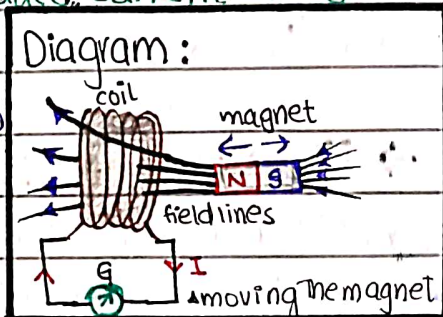 Diagram:
coil
magnet
N S
field lines
G I
moving the magnet